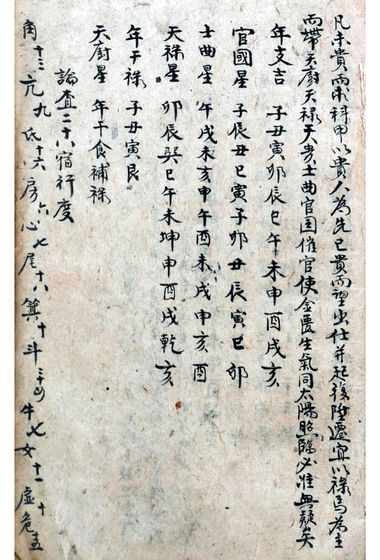 凡未貴而求科甲以貴人為先已貴而望出仕并起復陞遷宜以祿馬為主
而帶天廚天祿天貴士曲官国催官使金慶生氣同太陽照臨必准無疑矣
年支吉 子丑寅卯辰巳午未申酉戌亥
官國星 子辰丑巳寅子卯丑辰寅巳卯
士曲星 午戌未亥申午酉未戌申亥酉
天祿星 卯辰巽巳午未坤申酉戌乾亥
年干祿 子丑寅艮
天廚星 年干食神祿
論查二十八宿行度
角十三亢九氐十六房六心七尾十八箕十斗牛七女十一虛十危